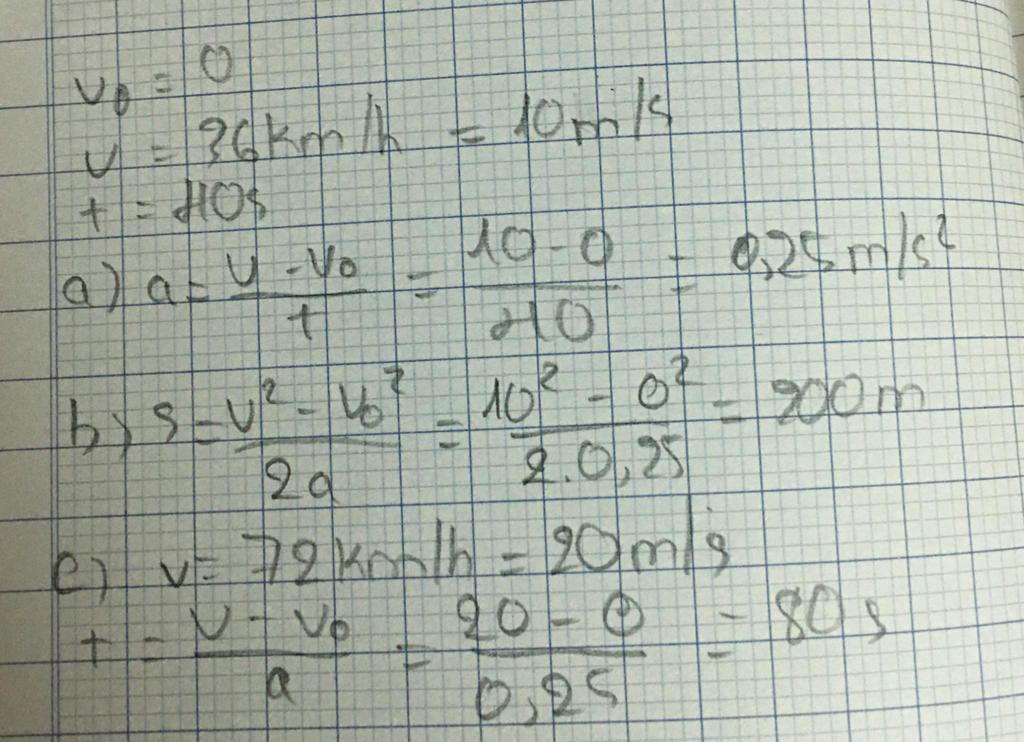 v₀ = 0
v = 36km/h = 10m/s
t = 40s
a) a = (v - v₀)/t = (10 - 0)/40 = 0,25m/s²
b) s = (v² - v₀²)/2a = (10² - 0²)/(2.0,25) = 200m
c) v = 72km/h = 20m/s
t = (v - v₀)/a = (20 - 0)/0,25 = 80s